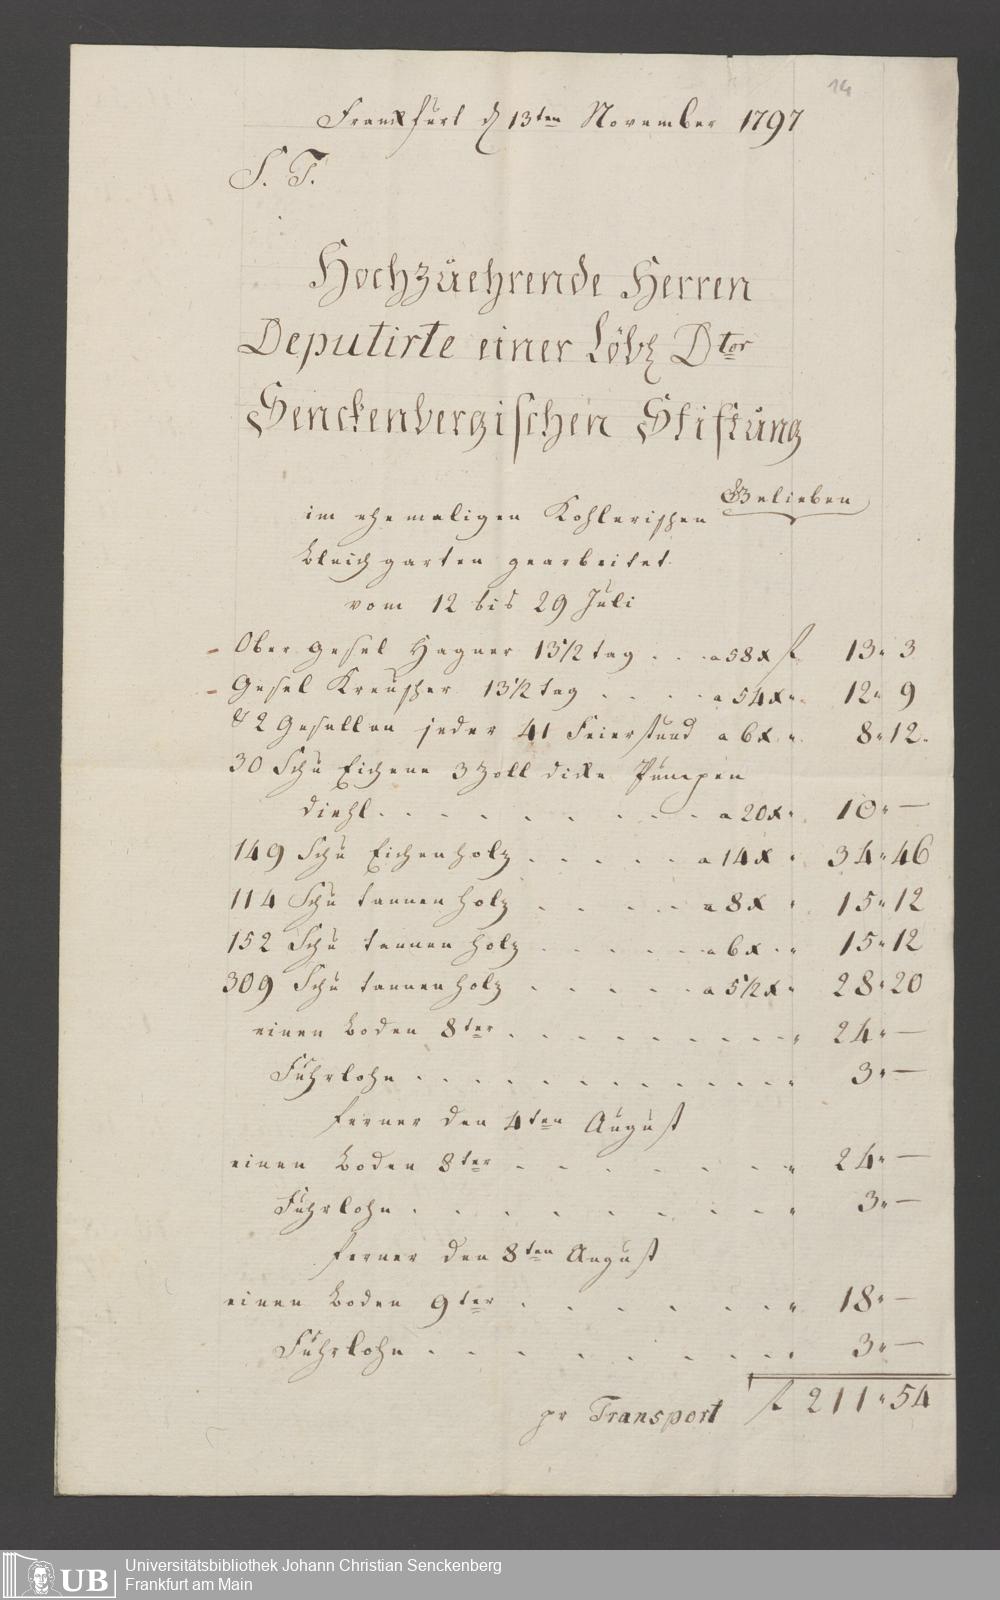 14
Frankfurt d 13ten November 1797
S. T.
Hochzuehrende Herren
Deputirte einer Löbl Dtor
Senckenbergischen Stiftung
Belieben
im ehemaligen Kohlerischen
bleich garten gearbeitet
vom 12 bis 29 Juli
Ober gesel Hagner 13 1/2 tag . . . a 58 x f 13 " 3
Gesel Kreuscher 13 1/2 tag . . . . a 54 x " 12 " 9
& 2 Gesellen jeder 41 Feierstund a 6 x " 8 " 12
30 Schu Eichene 3 zoll dicke Pumpen
diehl . . . . . . . . . a 20 x " 10 " —
149 Schu Eichenholz . . . . . a 14 x " 34 " 46
114 Schu tannenholz . . . . a 8 x " 15 " 12
152 Schu tannenholz . . . . . a 6 x " 15 " 12
309 Schu tannenholz . . . . . a 5 1/2 x " 28 " 20
einen Boden 8ter . . . . . . . . . . " 24 " —
Fuhrlohn . . . . . . . . . . . . . " 3 " —
ferner den 4ten August
einen Boden 8ter . . . . . . . " 24 " —
Fuhrlohn . . . . . . . . " 3 " —
ferner den 8ten August
einen Boden 9ter . . . . . . . " 18 " —
Fuhrlohn . . . . . . . . . " 3 " —
pr Transport f 211 " 54
UB
Universitätsbibliothek Johann Christian Senckenberg
Frankfurt am Main